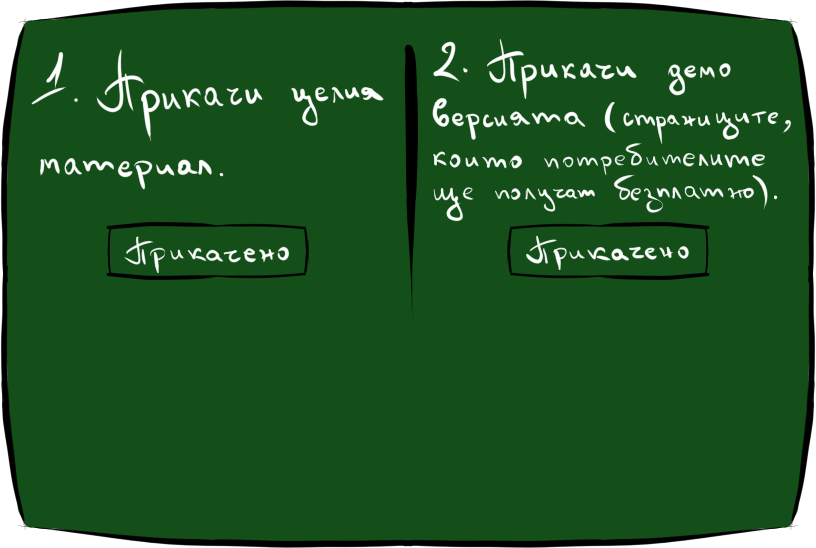 1. Прикачи целия
материал.
Прикачено
2. Прикачи демо
версията (страниците,
които потребителите
ще получат безплатно).
Прикачено